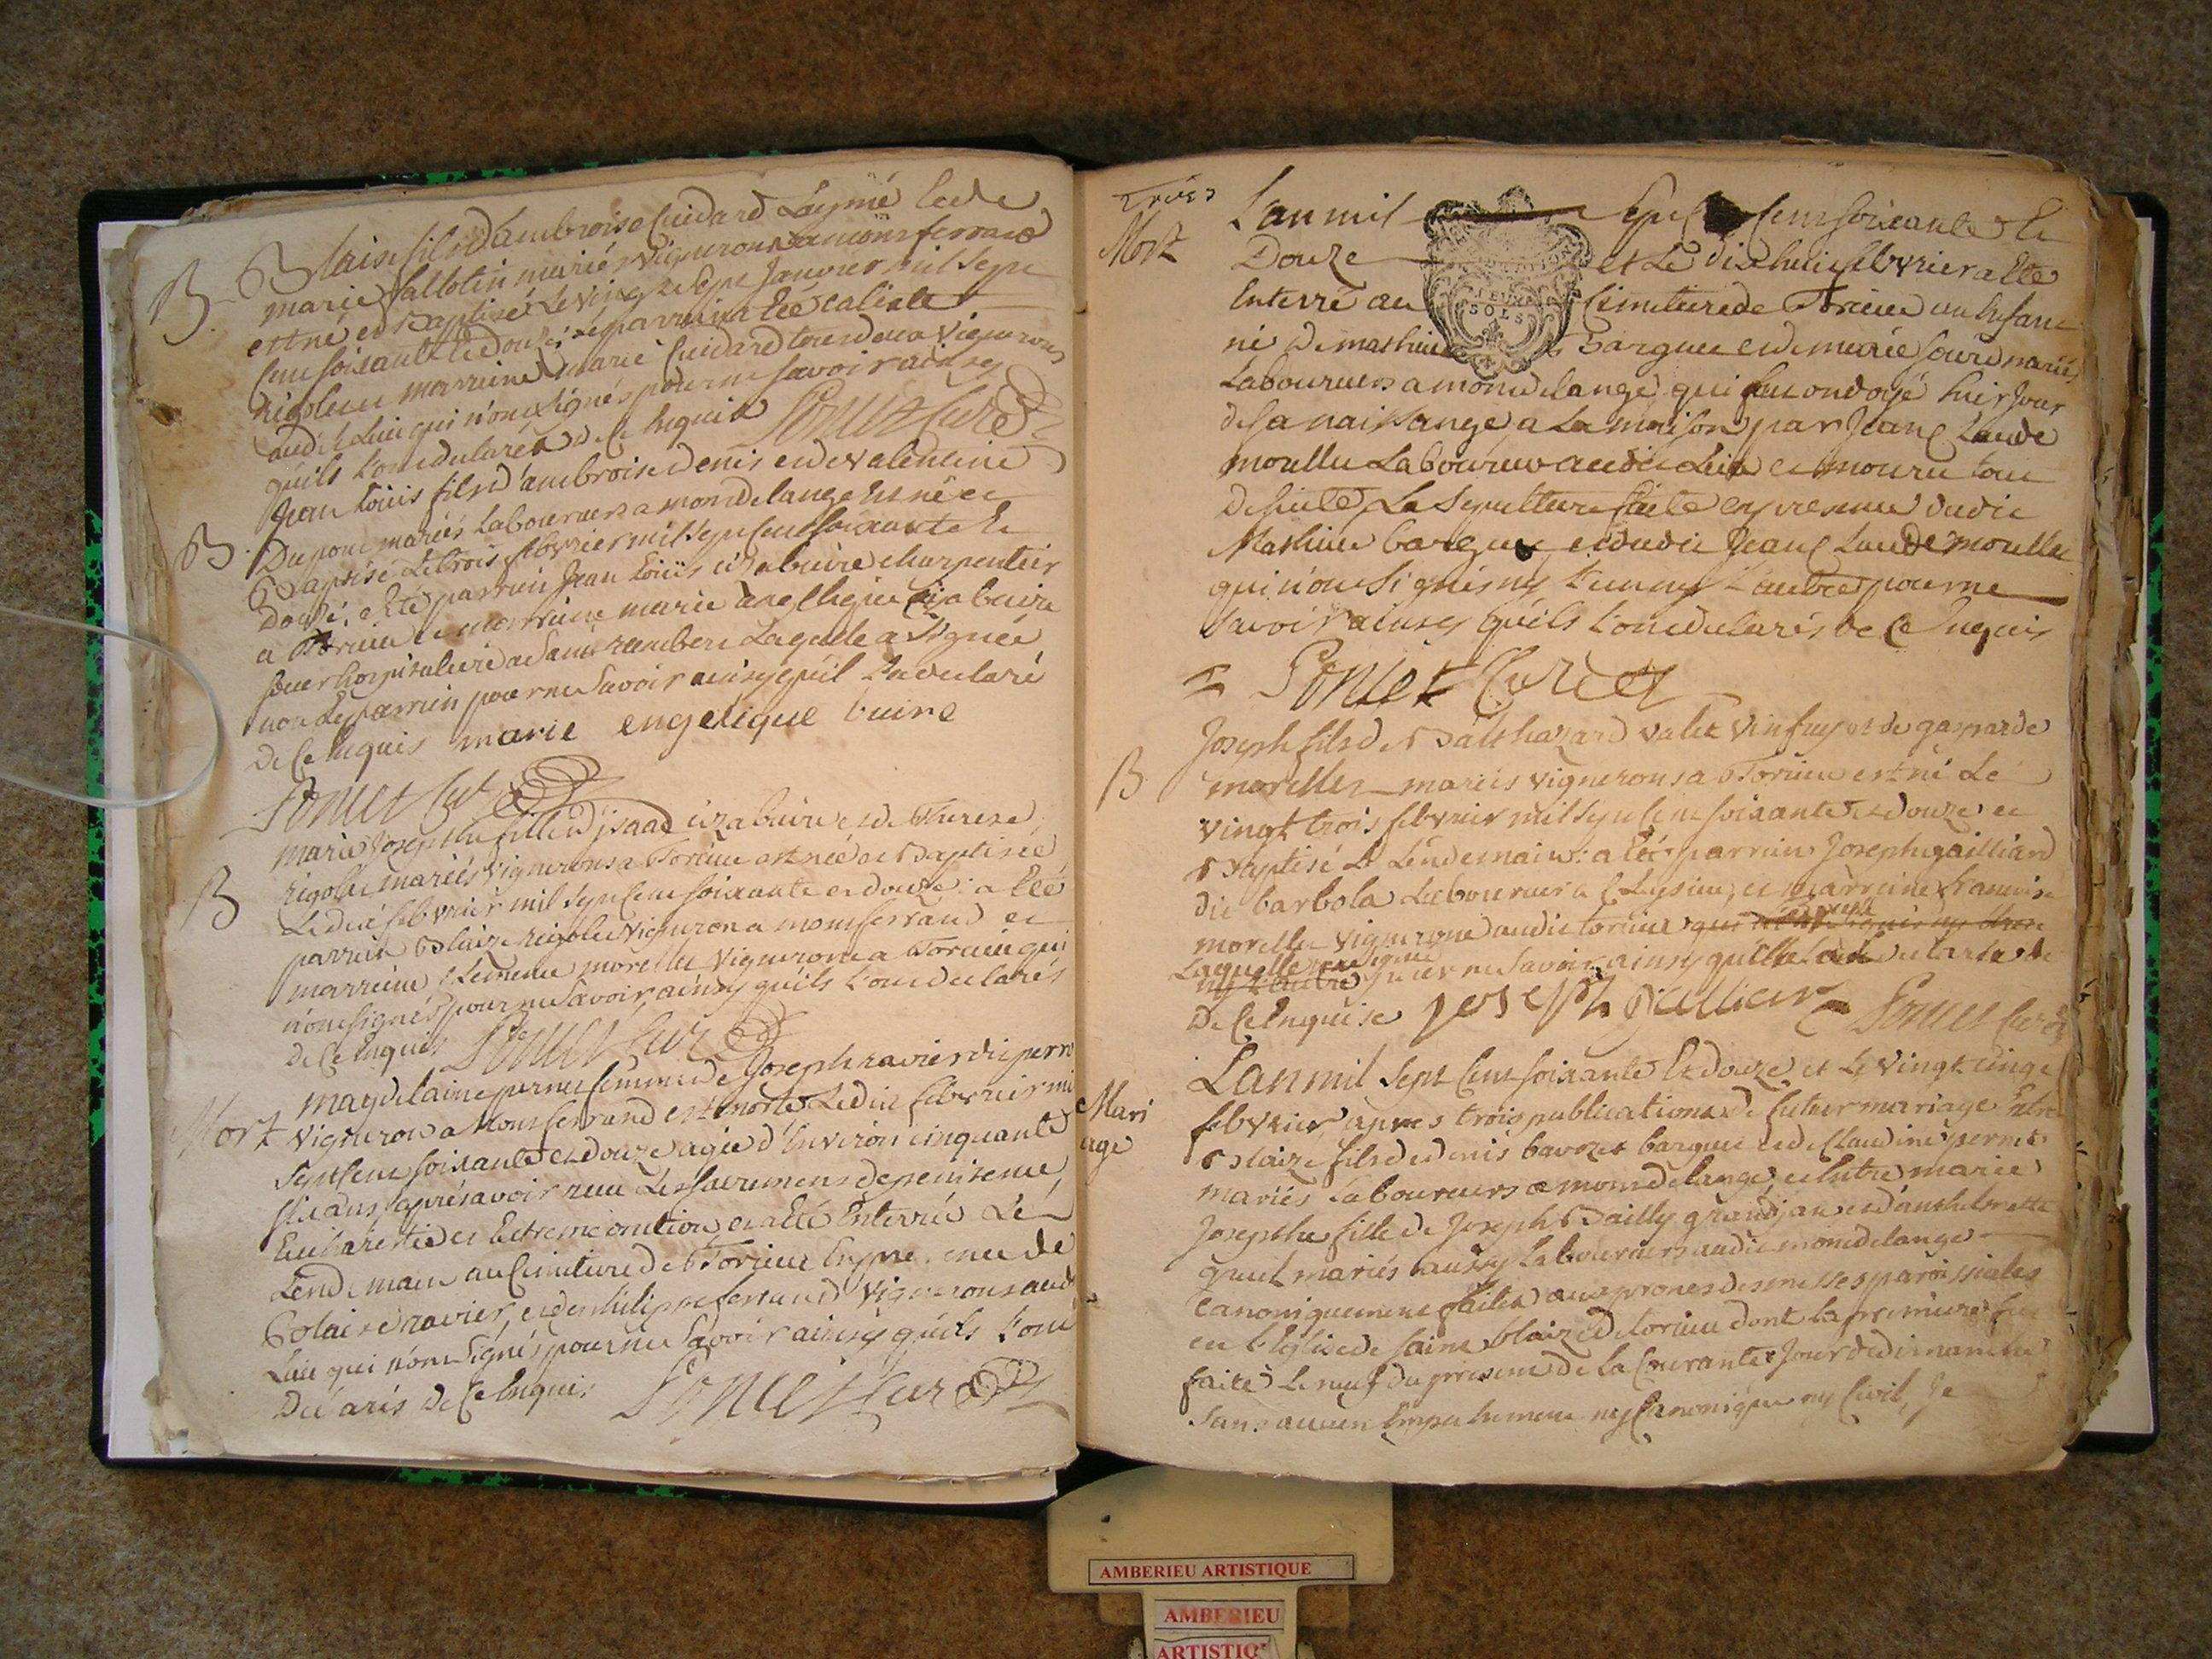 B
Blaise fils d'ambroise Cuidard Laymé et de
marie vallotin mariés vignerons a monferrand
est né et Baptisé Le vingt et sept Janvier mil sept
Cent soixante et douze, parrain a été
rigollet marraine marie Cuidard tous deux vignerons
audit Lieu qui n'ont signés pour ne sçavoir ainsy
qu'ils L'ont declarés de ce Enquis Poncet Curé
B
Jean Loüis fils d'ambroise denis et de valentine
Dupont mariés Laboureurs a mondelange Est né et
Baptisé Le trois febvrier mil sept Cent soixante et
Douze, a Eté parrain Jean Loüis charpentier
a Torcieu et marraine marie angellique
soeur hospitaliere a saint rambert Laquelle a signée
non Le parrain pour ne Savoir ainsy qu'il La declaré
De Ce Enquis marie engelique buire
Poncet Curé
B
marie Josephte fille d'jsaac et de Therese
rigolet mariés vignerons a Torcieu est née et Baptisée
Le dix febvrier mil sept Cent soixante et douze: a Eté
parrain Blaize rigolet vigneron a monferrand et
marraine Clemence morellet vigneronne a Torcieu qui
n'ont signés pour ne Savoir, ainsy qu'ils L'ont declarés
de Ce Enquis Poncet Curé
Mort
magdelaine pernet femme de Joseph ravier dit perr
vigneron a Monferrand est morte Le dix febvrier mi
sept Cent soixante et douze agée d'Environ cinquante
six ans apres avoir recu Les sacremens de penitence,
Eucharistie et Extreme onction, et a Eté Enterrée Le
Lendemain au Cimetiere de Torcieu En presence de
Blaise ravier, et de philippe ferrand vignerons aud
Lieu qui n'ont signés pour ne Savoir ainsy qu'ils L'ont
Declarés De Ce Enquis Poncet Curé
trois
Mort
L'an mil Sept Cent soixante et
Douze et Le dix huit febvrier a Eté
Enterré au Cimetiere de Torcieu un Enfant
né de mathieu Barguet et de marie mariés
Laboureurs a mondelange, qui fut ondoyé hier Jour
de sa naissange, a La maison par Jean Claude
moullet Laboureur audit Lieu et mouru tout
de suite, La sepulture faite en presence dudit
Mathieu barguet, et dudit Jean Claude moullet
qui n'ont signés ny L'un ny L'autre pour ne
savoir ainsy qu'ils L'ont declarés de Ce Enquis
Poncet Curé
B
Joseph fils de Balthazard valet vinfray et de gasparde
morellet mariés vignerons a Torcieu est né Le
vingt trois febvrier mil sept Cent soixante et douze et
Baptisé Le Lendemain: a Eté parrain Joseph gailliard
dit barbola Laboureur a Cleysieu, et marraine francoise
morellet vigneronne audit torcieu
Laquelle pour ne Savoir, ainsy qu'elle La declaré
De Ce Enquise joseph
Poncet Curé
Mari
age
L'an mil sept Cent soixante Et douze, et Le vingt cinq
febvrier, apres trois publications de futur mariage Entre
Blaize fils de denis bavozet barguet et de Claudine pernet
mariés Laboureurs a mondelange, et Entre marie
Josephte fille de Joseph Bailly grandjan et d'anthelmette
mariés aussy Laboureurs audit mondelange
Canoniquement faites aux prones des messes paroissiales
en L'Eglise de saint blaize de torcieu dont La premiere fut
faite Le neuf du present de La Courante Jour de dimanche
sans aucun Empechement ny Canonique ny Civil, Je
SOLS
AMBERIEU ARTISTIQUE
AMBERIEU
ARTISTIQ